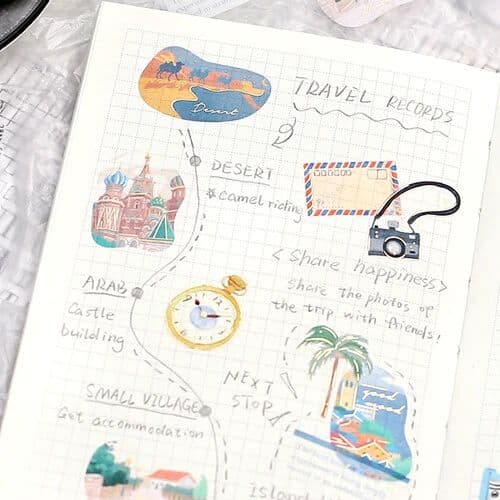 Desert
TRAVEL RECORDS
DESERT
camel riding
<Share happiness>
share the photos of
the trip with friends!
ARAB
Castle
building
NEXT
STOP
good
mood
SMALL VILLAGE
Get accommodation
Island